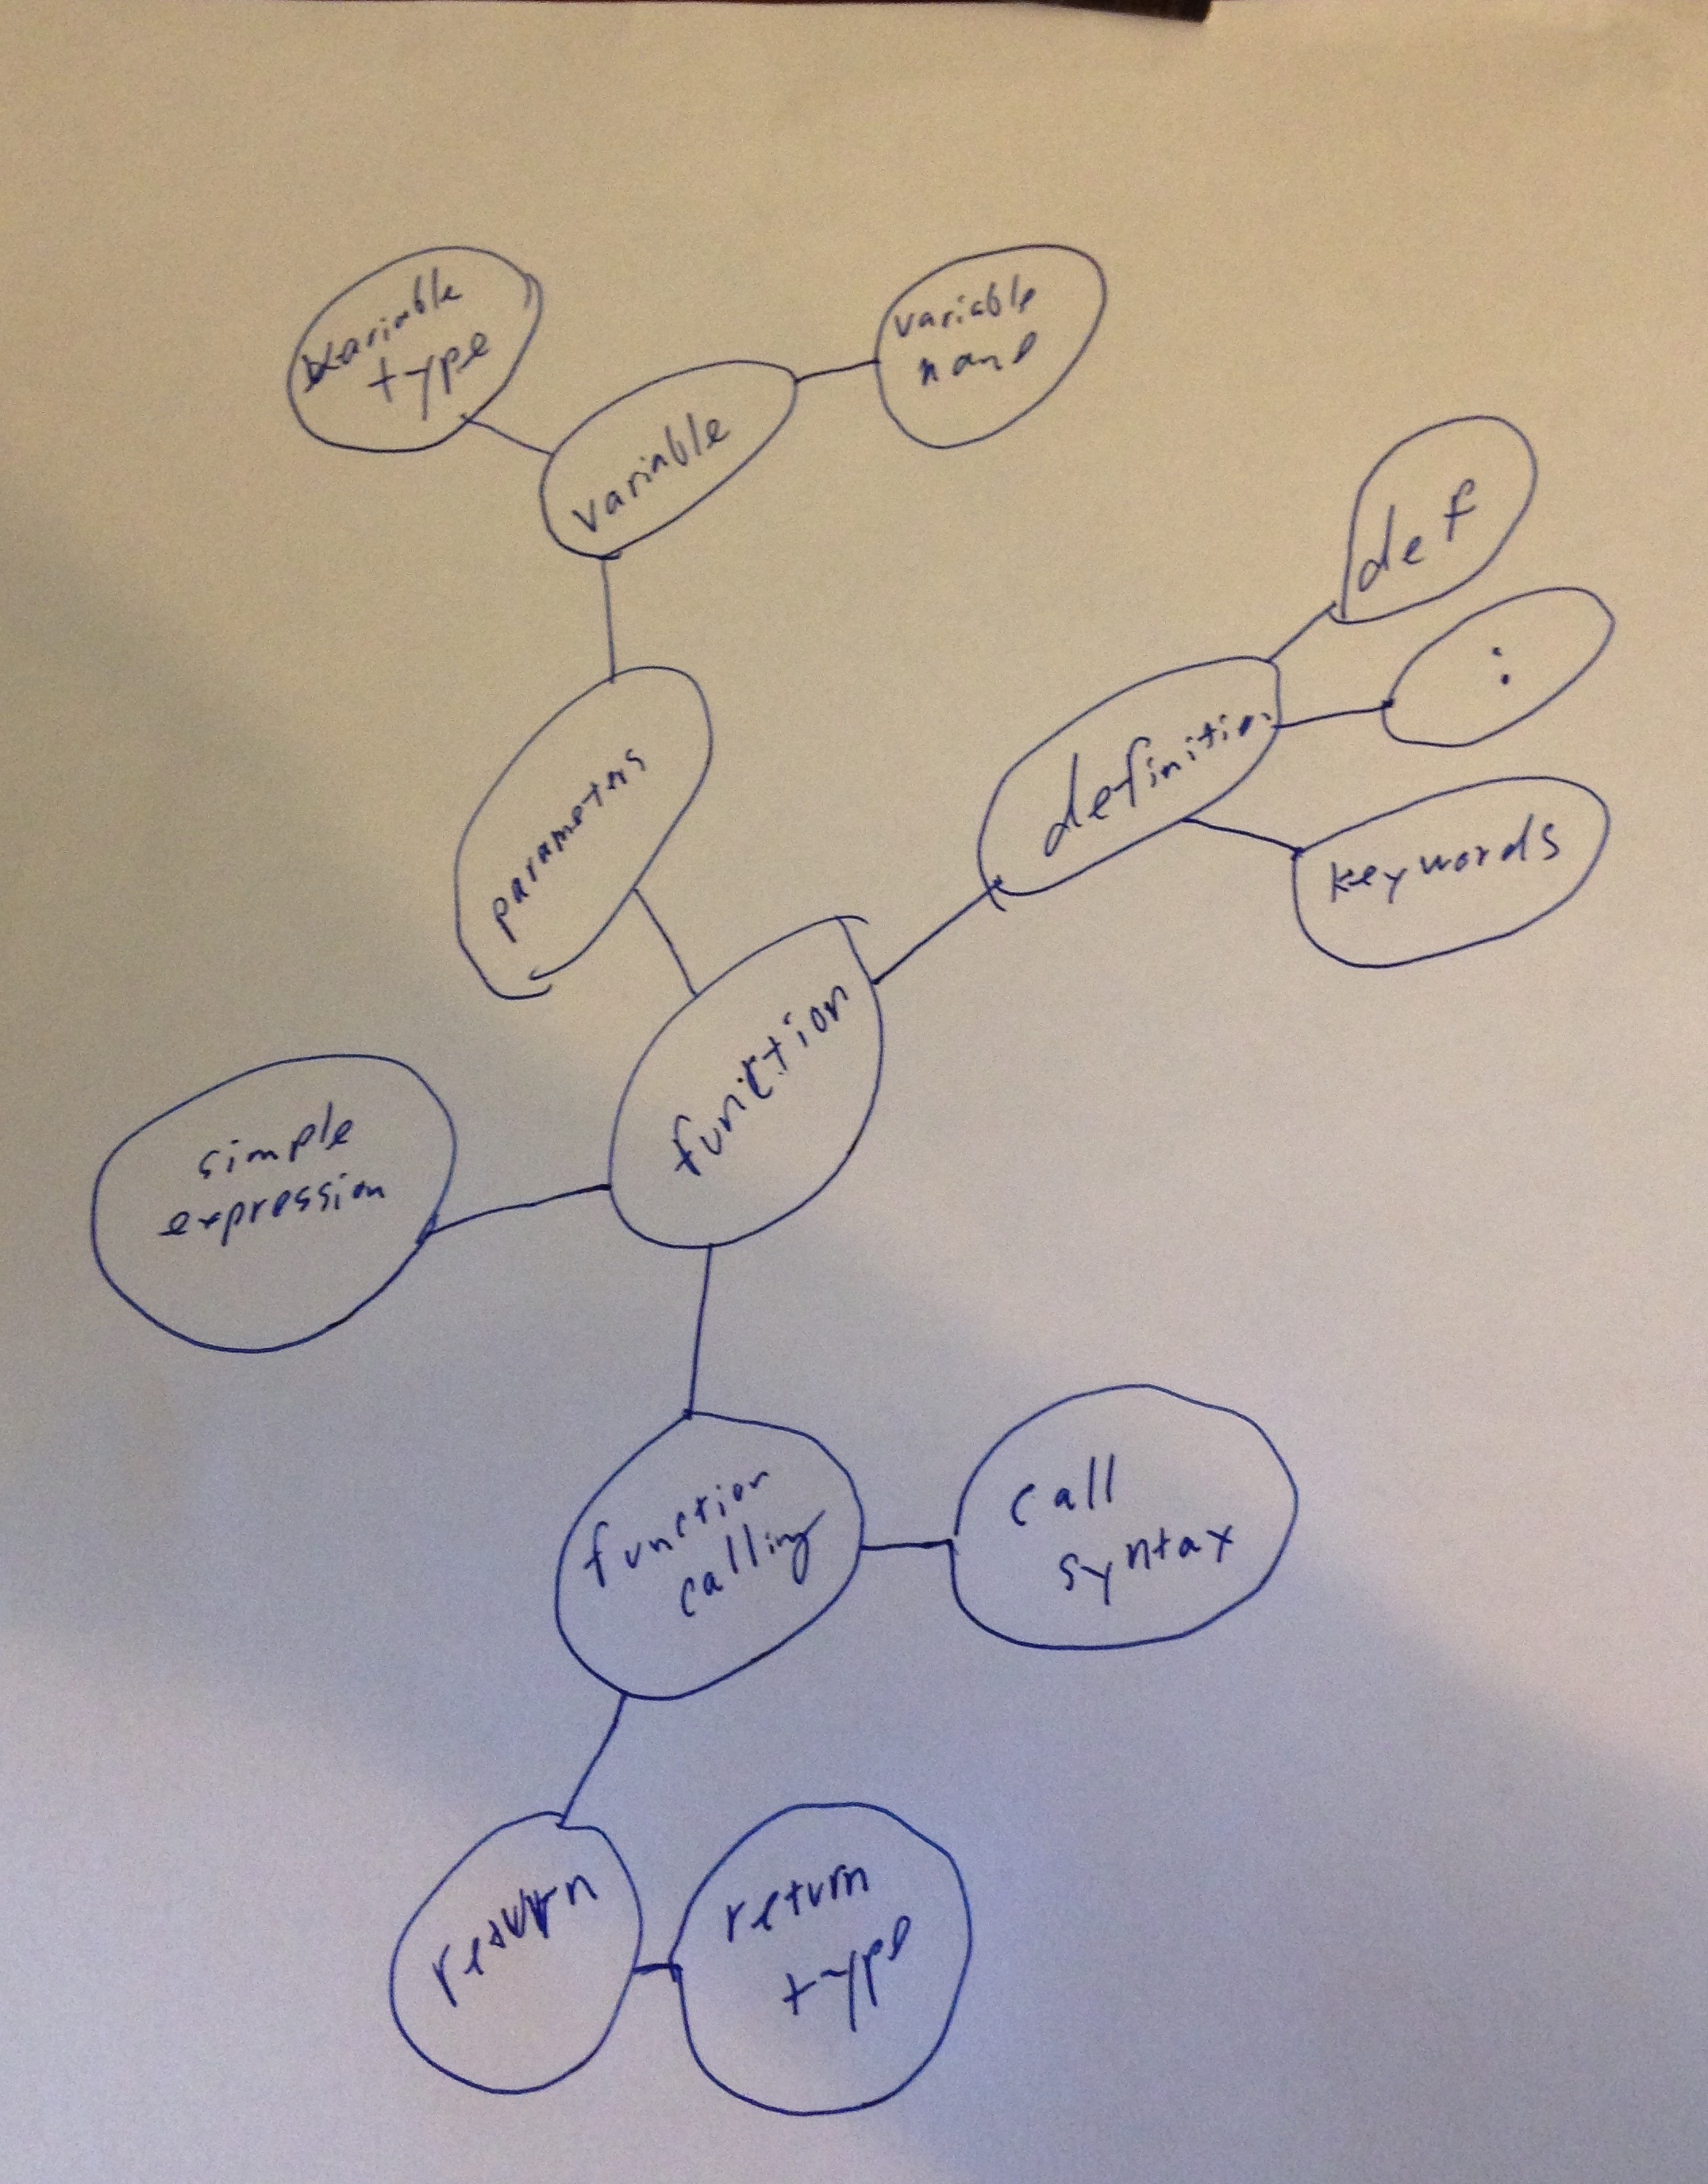 variable
type
variable
name
variable
def
:
definition
keywords
parameters
function
simple
expression
function
calling
call
syntax
return
return
type